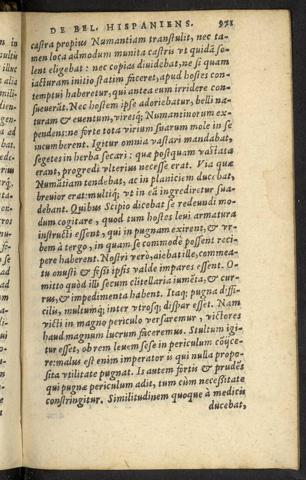 DE BEL. HISPANIENS. 971
castra propius Numantiam transtulit, nec ta-
men loca admodum munita castris vt quidã so-
lent eligebat: nec copias diuidebat, ne si quam
iacturam initio statim faceret, apud hostes con-
temptui haberetur, qui antea eum irridere con-
sueuerãt. Nec hostem ipse adoriebatur, belli na-
turam & euentum, viresq; Numantinorum ex-
pendens: ne forte tota virium suarum mole in se
incumberent. Igitur omnia vastari mandabat,
segetes in herba secari: quæ postquam vastata
erant, progredi vlterius necesse erat. Via quæ
Numãtiam tendebat, ac in planiciem ducebat,
breuior erat: multiq; vt in eã ingrediretur sua-
debant. Quibus Scipio dicebat se redeundi mo-
dum cogitare, quod tum hostes leui armatura
instructi essent, qui in pugnam exirent, & vr-
bem à tergo, in quam se commodè possent reci-
pere haberent. Nostri verò, aiebat ille, commea-
tu onusti & fessi ipsis valde impares essent. O-
mitto quòd illi secum clitellaria iumẽta, & cur-
rus, & impedimenta habent. Itaq; pugna diffi-
cilis, multumq; inter vtrosq; dispar esset. Nam
victi in magno periculo versaremur, victores
haud magnum lucrum faceremus. Stultum igi-
tur esset, ob rem leuem sese in periculum cõijce-
re: malus est enim imperator is qui nulla propo-
sita vtilitate pugnat. Is autem fortis & prudẽs
qui pugnæ periculum adit, tum cùm necessitate
constringitur. Similitudinem quoque à medicis
ducebat,